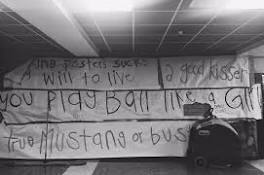 posters suck:
A will to live
a good kisser
you play Ball like a Girl
true Mustang or bust